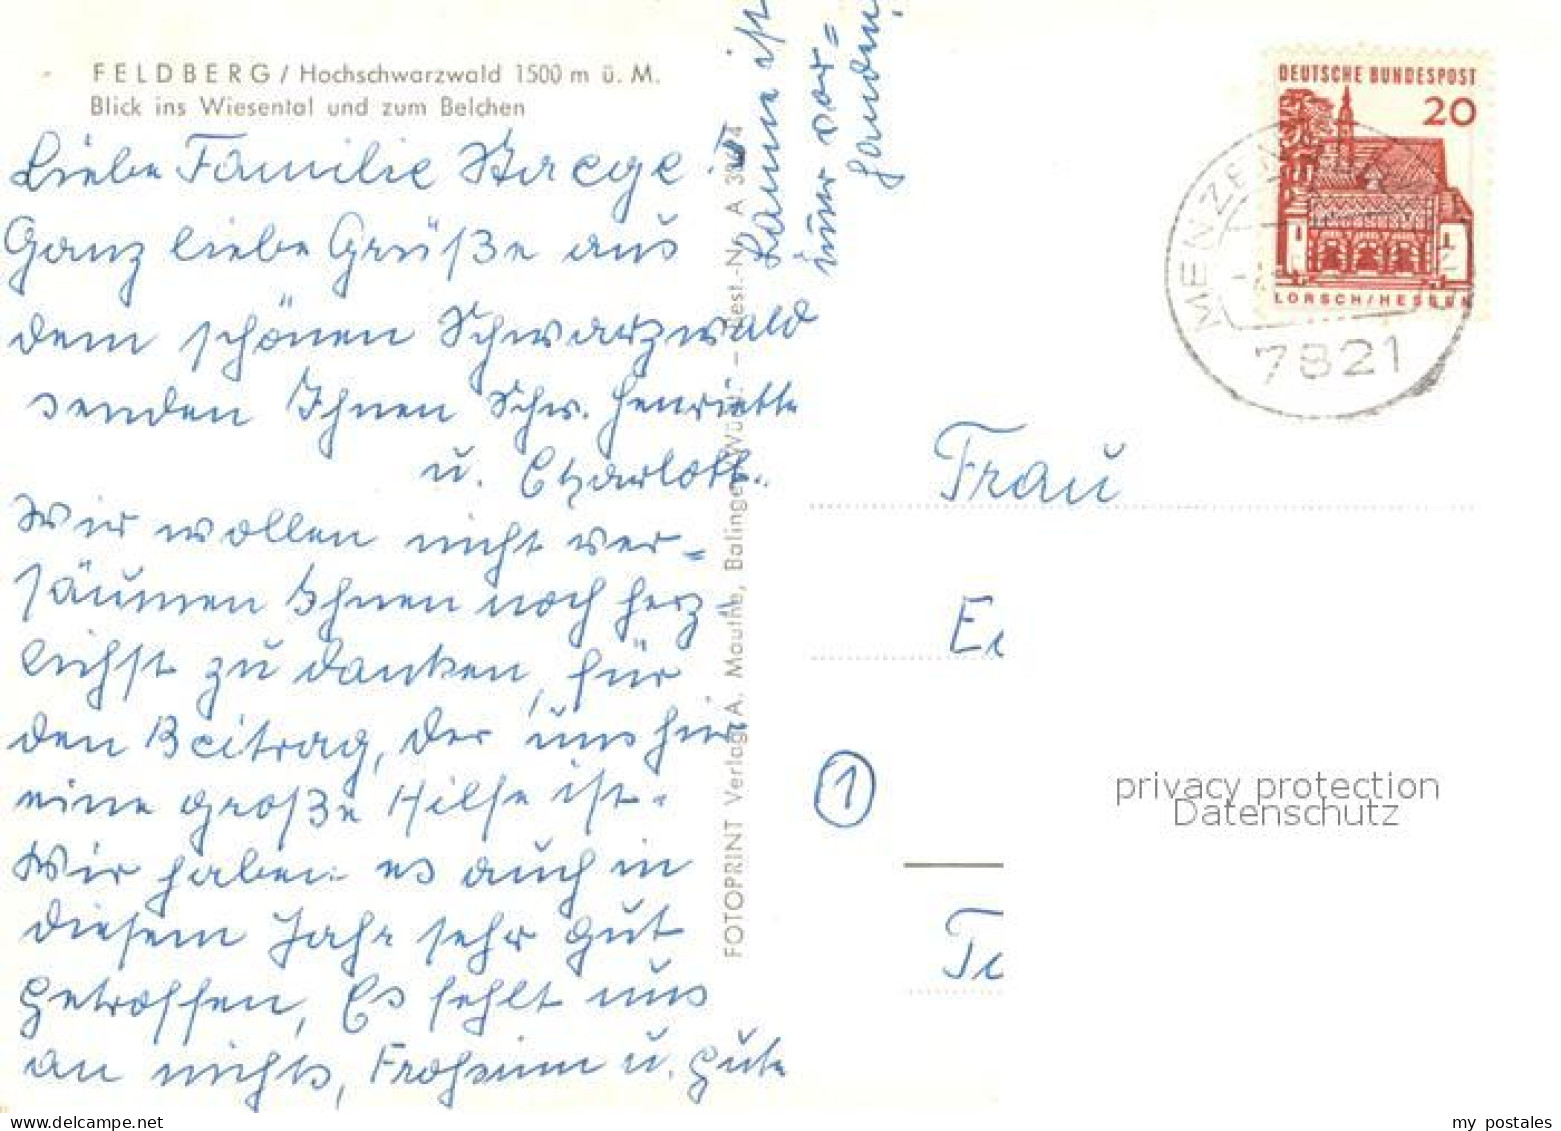 FELDBERG / Hochschwarzwald 1500 m ü. M.
Blick ins Wiesental und zum Belchen
Liebe Familie
Ganz liebe Grüße aus
dem schönen Schwarzwald
senden Ihnen Schw. Henriette
u. Charlott.
Wir wollen nicht ver=
säumen Ihnen noch herz=
lichst zu danken, für
den Beitrag, der uns hier
eine große Hilfe ist.
Wir haben es auch in
diesem Jahr sehr gut
getroffen, Es fehlt uns
an nichts, Frohsinn u. gute
Laune ist
immer vor=
handen!
FOTOPRINT Verlag A. Mauthe, Balingen/Württ. – Best.-Nr. A
DEUTSCHE BUNDESPOST
20
LORSCH/HESSEN
MENZEN
7821
Frau
E
1
T
privacy protection
Datenschutz
my postales